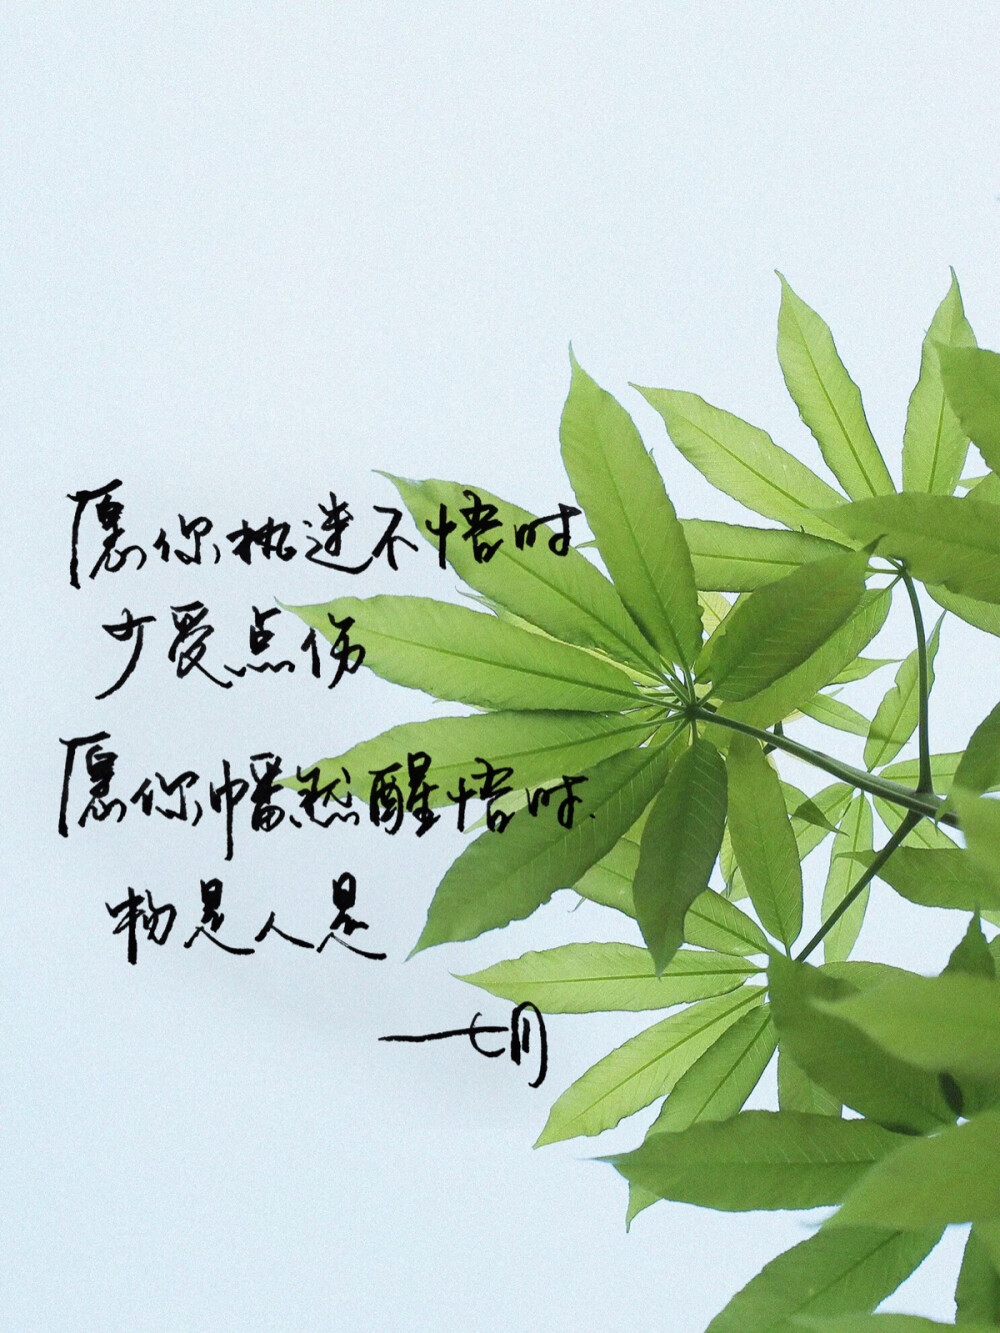 愿你执迷不悟时
少爱点伤
愿你幡然醒悟时
物是人是
——七月